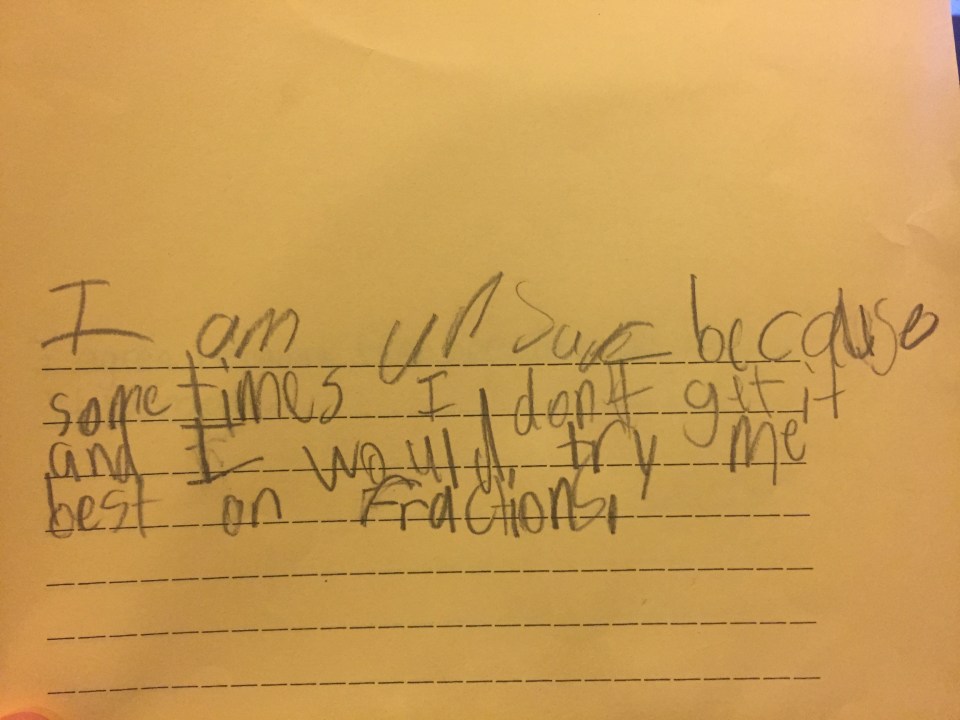 I am un Sure because
some times I don't get it
and I would try me
best on Fractions.